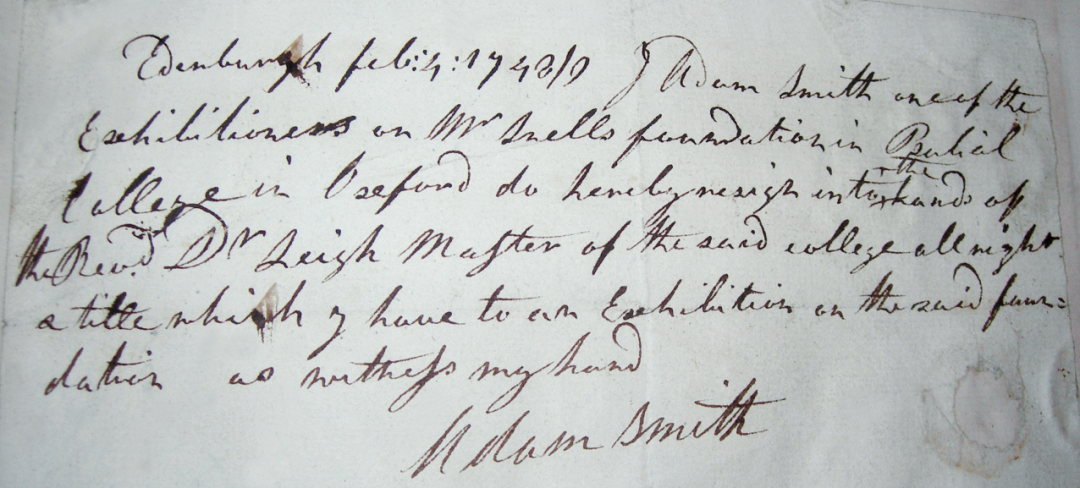 Edenburgh feb: 4: 1748/9 I Adam Smith one of the
Exhibitioners on Mr Snells foundation in Balial
College in Oxford do hereby resign into the hands of
the Revd. Dr Leigh Master of the said college all right
& title which I have to an Exhibition on the said foun=
dation as witness my hand
Adam Smith